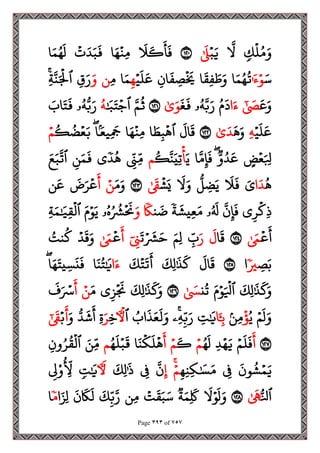 وَمُلْكٍ لَّا يَبْلَىٰ ١٢٠ فَأَكَلَا مِنْهَا فَبَدَتْ لَهُمَا
سَوْءَٰتُهُمَا وَطَفِقَا يَخْصِفَانِ عَلَيْهِمَا مِن وَرَقِ ٱلْجَنَّةِ ۚ
وَعَصَىٰٓ ءَادَمُ رَبَّهُۥ فَغَوَىٰ ١٢١ ثُمَّ ٱجْتَبَٰهُ رَبُّهُۥ فَتَابَ
عَلَيْهِ وَهَدَىٰ ١٢٢ قَالَ ٱهْبِطَا مِنْهَا جَمِيعًۢا ۖ بَعْضُكُمْ
لِبَعْضٍ عَدُوٌّ ۖ فَإِمَّا يَأْتِيَنَّكُم مِّنِّى هُدًى فَمَنِ ٱتَّبَعَ
هُدَاىَ فَلَا يَضِلُّ وَلَا يَشْقَىٰ ١٢٣ وَمَنْ أَعْرَضَ عَن
ذِكْرِى فَإِنَّ لَهُۥ مَعِيشَةً ضَنكًا وَنَحْشُرُهُۥ يَوْمَ ٱلْقِيَٰمَةِ
أَعْمَىٰ ١٢٤ قَالَ رَبِّ لِمَ حَشَرْتَنِىٓ أَعْمَىٰ وَقَدْ كُنتُ
بَصِيرًا ١٢٥ قَالَ كَذَٰلِكَ أَتَتْكَ ءَايَٰتُنَا فَنَسِيتَهَا ۖ
وَكَذَٰلِكَ ٱلْيَوْمَ تُنسَىٰ ١٢٦ وَكَذَٰلِكَ نَجْزِى مَنْ أَسْرَفَ
وَلَمْ يُؤْمِنۢ بِـَٔايَٰتِ رَبِّهِۦ ۚ وَلَعَذَابُ ٱلْـَٔاخِرَةِ أَشَدُّ وَأَبْقَىٰٓ
١٢٧ أَفَلَمْ يَهْدِ لَهُمْ كَمْ أَهْلَكْنَا قَبْلَهُم مِّنَ ٱلْقُرُونِ
يَمْشُونَ فِى مَسَٰكِنِهِمْ ۗ إِنَّ فِى ذَٰلِكَ لَـَٔايَٰتٍ لِّأُو۟لِى
ٱلنُّهَىٰ ١٢٨ وَلَوْلَا كَلِمَةٌ سَبَقَتْ مِن رَّبِّكَ لَكَانَ لِزَامًا
Page ٣٩٣ of ٧٥٧